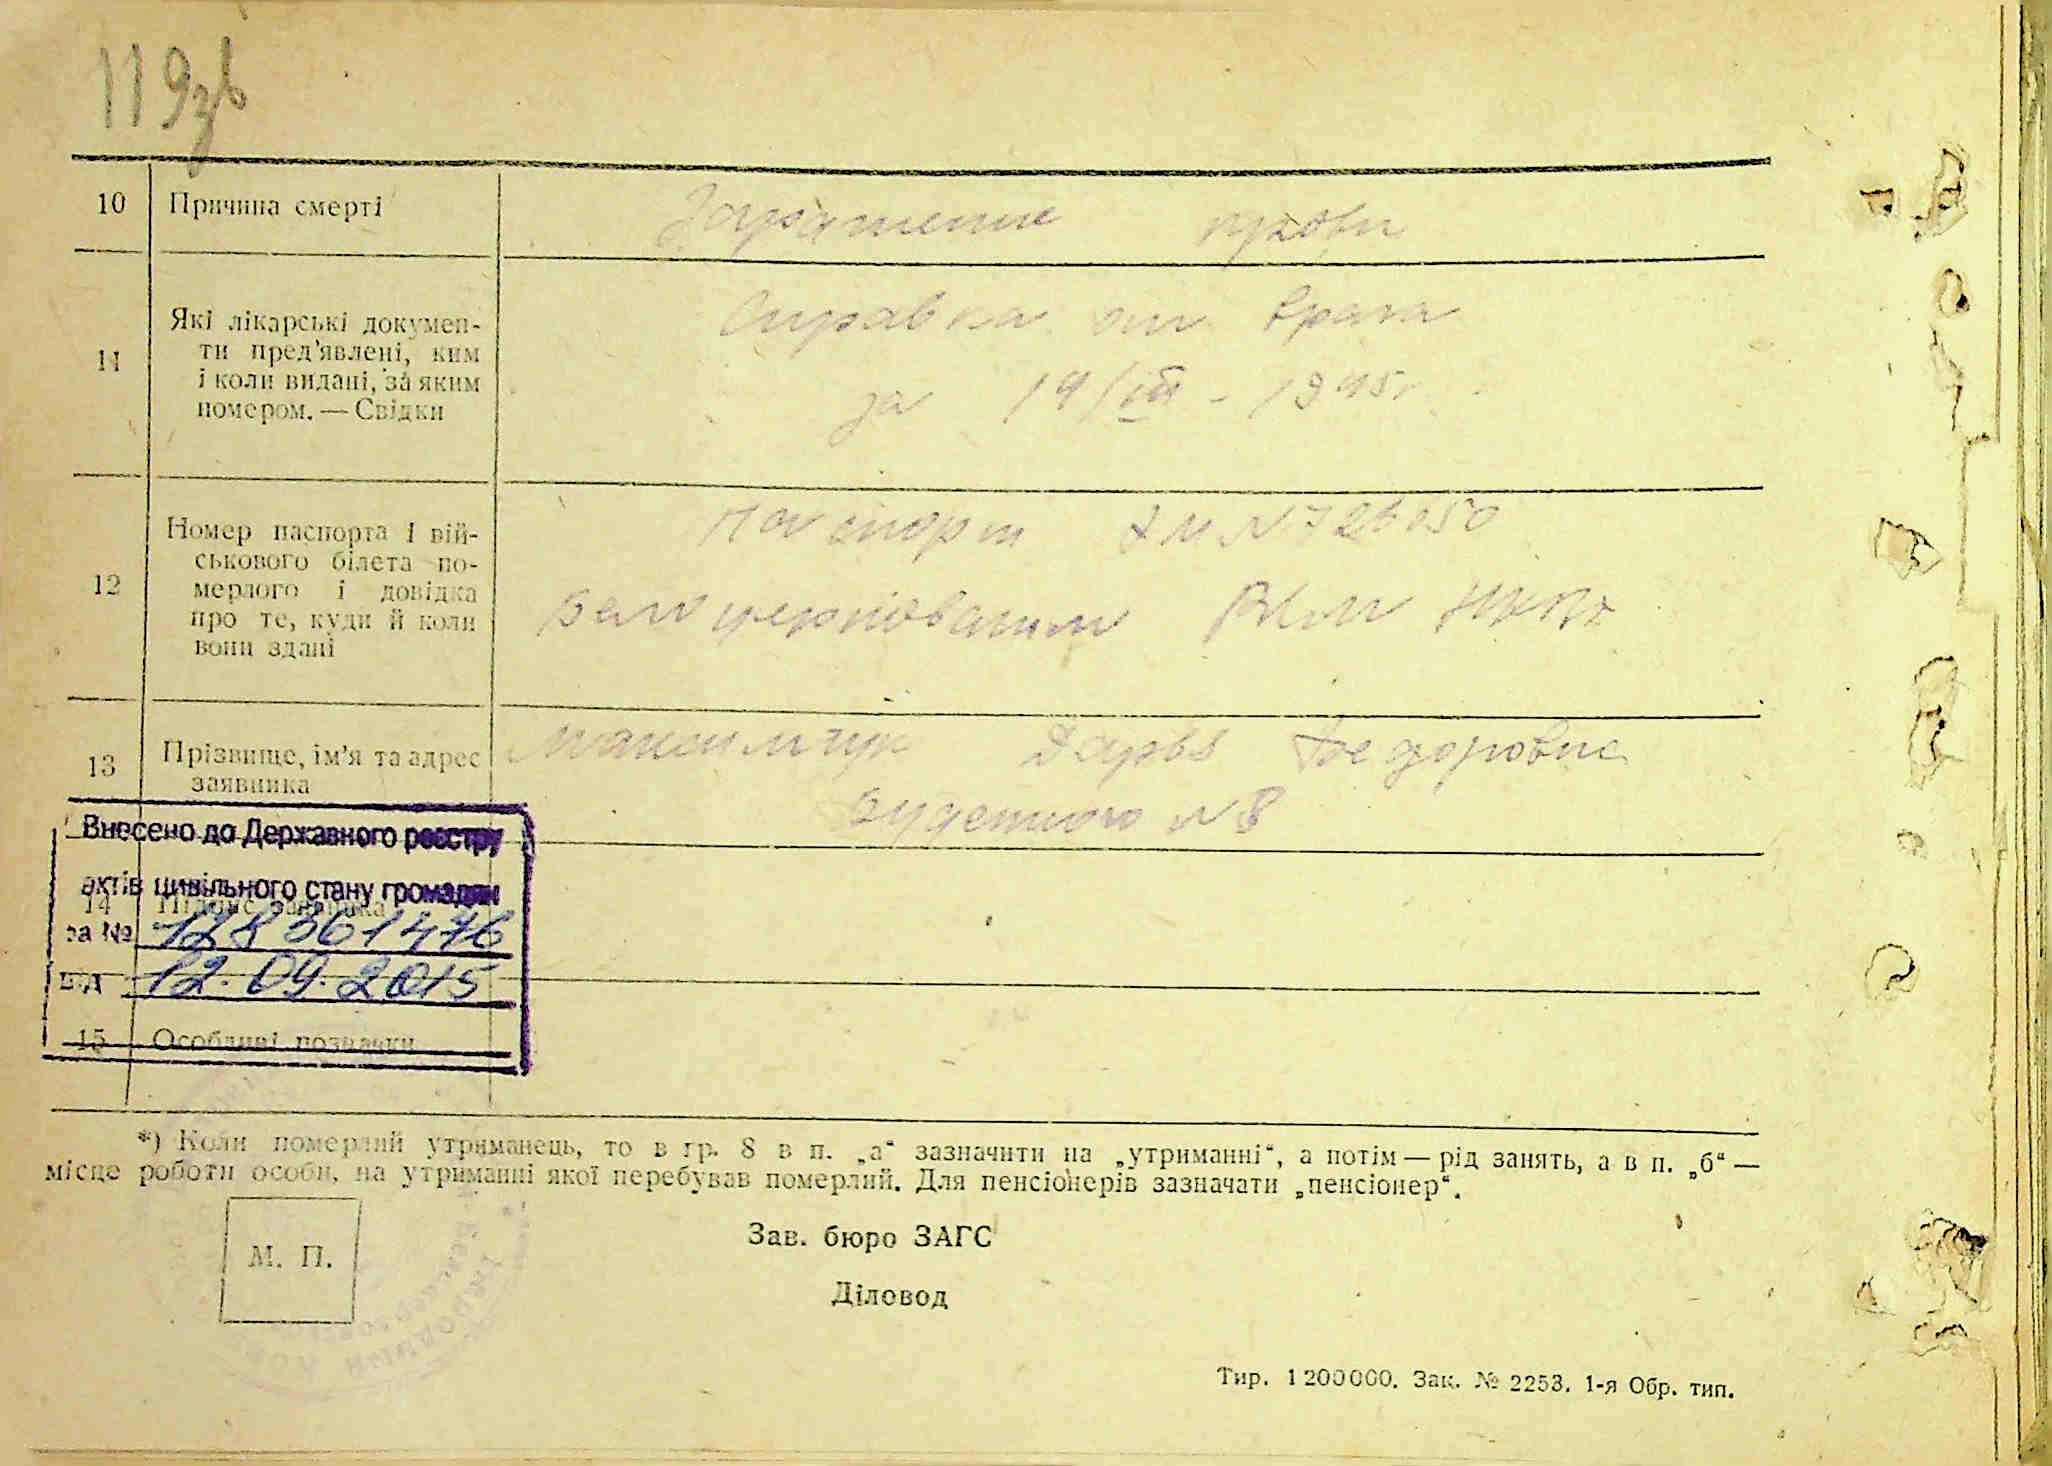 119зв
10 Причина смерті
Заражение крови
11 Які лікарські докумен-
ти пред'явлені, ким
і коли видані, за яким
номером. — Свідки
Справка от врача
за 1945г
12 Номер паспорта і вій-
ськового білета по-
мерлого і довідка
про те, куди й коли
вони здані
Паспорт № 726050
Белоцерковским НКВД
13 Прізвище, ім'я та адрес
заявника
Максимчук Дарья Федоровна
Буденного № 8
Внесено до Державного реєстру
актів цивільного стану громадян
14 Підпис заявника
за № 128361476
від 12.09.2015
15 Особливі позначки
*) Коли померлий утриманець, то в гр. 8 в п. „а“ зазначити на „утриманні“, а потім — рід занять, а в п. „б“ —
місце роботи особи, на утриманні якої перебував померлий. Для пенсіонерів зазначати „пенсіонер“.
М. П.
Зав. бюро ЗАГС
Діловод
Тир. 1200000. Зак. № 2253. 1-я Обр. тип.